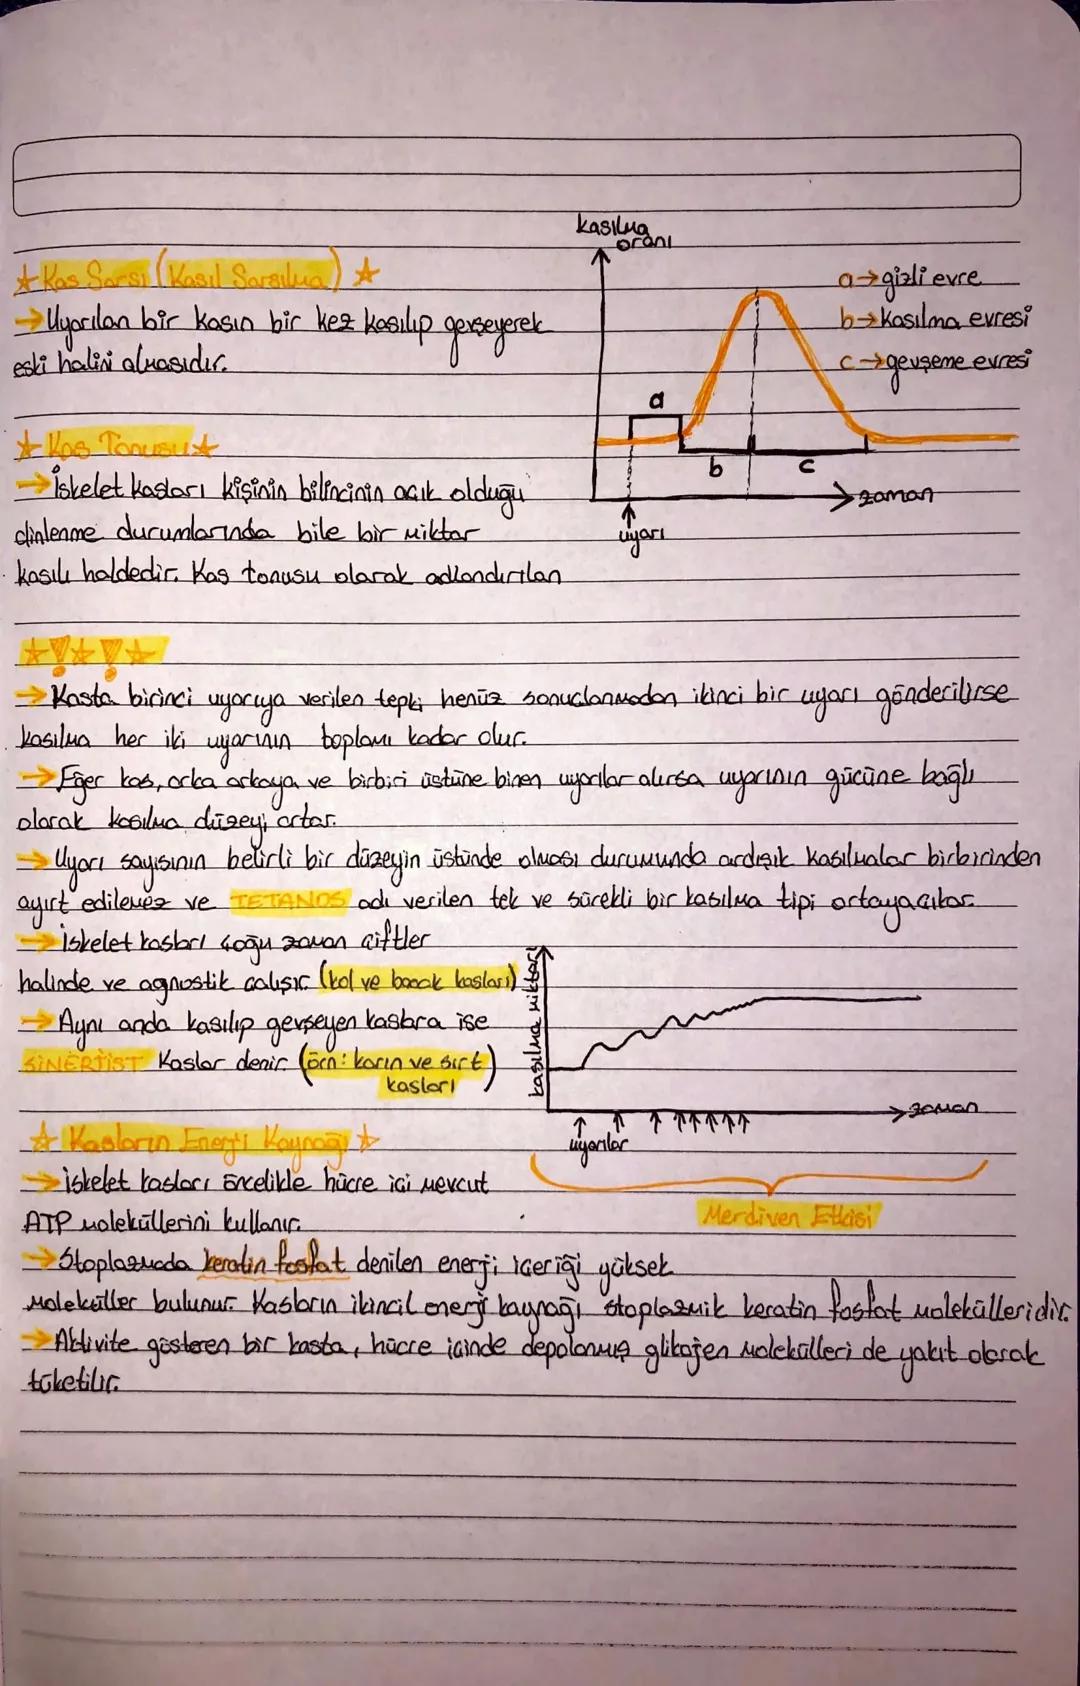 kasılma
oranı
☆ Kas Sarsı (Kasıl Sarsılma) ☆
→ Uyarılan bir kasın bir kez kasılıp gevşeyerek
eski halini almasıdır.
a→gizli evre
b→Kasılma evresi
c→gevşeme evresi
a
b
c
zaman
uyarı
☆ Kas Tonusu ☆
→ İskelet kasları kişinin bilincinin açık olduğu
dinlenme durumlarında bile bir miktar
kasılı haldedir. Kas tonusu olarak adlandırılan
☆!☆!☆
→ Kasta birinci uyarıya verilen tepki henüz sonuçlanmadan ikinci bir uyarı gönderilirse
kasılma her iki uyarının toplamı kadar olur.
→ Eğer kas, arka arkaya ve birbiri üstüne binen uyarılar alırsa uyarının gücüne bağlı
olarak kasılma düzeyi artar.
→ Uyarı sayısının belirli bir düzeyin üstünde olması durumunda ardışık kasılmalar birbirinden
ayırt edilemez ve TETANOS adı verilen tek ve sürekli bir kasılma tipi ortaya çıkar.
→ İskelet kasları çoğu zaman çiftler
halinde ve agnostik çalışır. (kol ve bacak kasları)
→ Aynı anda kasılıp gevşeyen kaslara ise
SİNERJİST Kaslar denir. (örn: karın ve sırt
kasları)
kasılma miktarı
zaman
uyarılar
Merdiven Etkisi
☆ Kasların Enerji Kaynağı ☆
→ İskelet kasları öncelikle hücre içi mevcut
ATP moleküllerini kullanır.
→ Stoplazmada keratin fosfat denilen enerji içeriği yüksek
moleküller bulunur. Kasların ikincil enerji kaynağı stoplazmik keratin fosfat molekülleridir.
→ Aktivite gösteren bir kasta, hücre içinde depolanmış glikojen molekülleri de yakıt olarak
tüketilir.